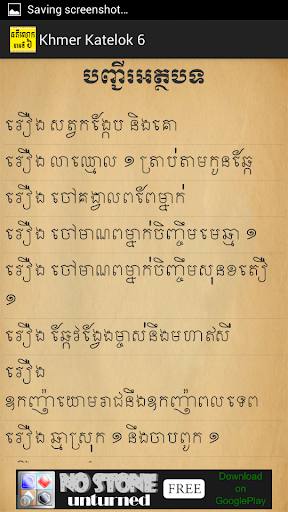 Saving screenshot…
គតិលោក
ភាគទី ៦
Khmer Katelok 6
បញ្ជីរអត្ថបទ
រឿង សត្វកង្កែប និងគោ
រឿង លាឈ្មោល ១ ត្រាប់តាមកូនឆ្កែ
រឿង ចៅគង្វាលពពែម្នាក់
រឿង ចៅមាណពម្នាក់ចិញ្ចឹមមេឆ្មា ១
រឿង ចៅមាណពម្នាក់ចិញ្ចឹមសុនខតឿ
១
រឿង ឆ្កែវង្វែងម្ចាស់នឹងមហាឥសី
រឿង
ឧកញ៉ាយោមរាជនឹងឧកញ៉ាពលទេព
រឿង ឆ្មាស្រុក ១ នឹងចាបពូក ១
NO STONE
unturned
FREE
Download
on
GooglePlay